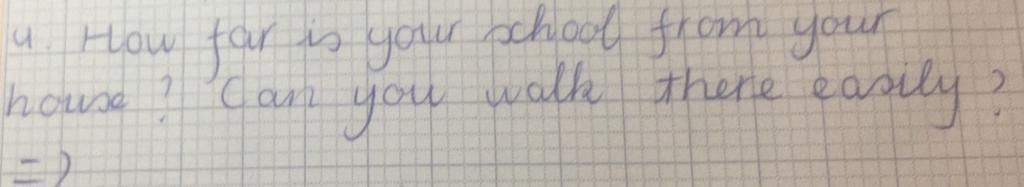 4. How far is your school from your
house? Can you walk there easily?
=)